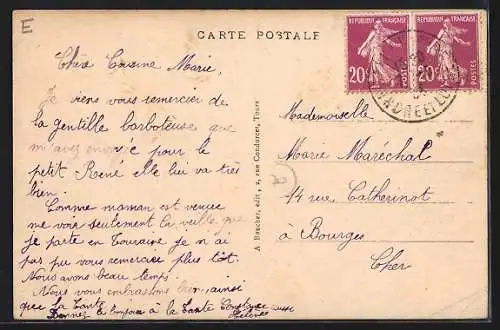 E
CARTE POSTALE
REPUBLIQUE FRANÇAISE
20c
POSTES
REPUBLIQUE FRANÇAISE
20c
POSTES
INDRE ET LOIRE
Chère Cousine Marie,
Je viens vous remercier de
la gentille barboteuse que
m'avez envoyée pour le
petit René elle lui va très
bien.
Comme maman est venue
me voir seulement la veille que
je parte en Touraine je n'ai
pas pu vous remercier plus tôt.
Nous avons beau temps.
Nous vous embrassons bien, ainsi
que la Tante
à la Tante
Hélène
A. Boucher, édit., rue Condorcet, Tours
Mademoiselle
Marie Maréchal
14 rue Catherinot
à Bourges
Cher